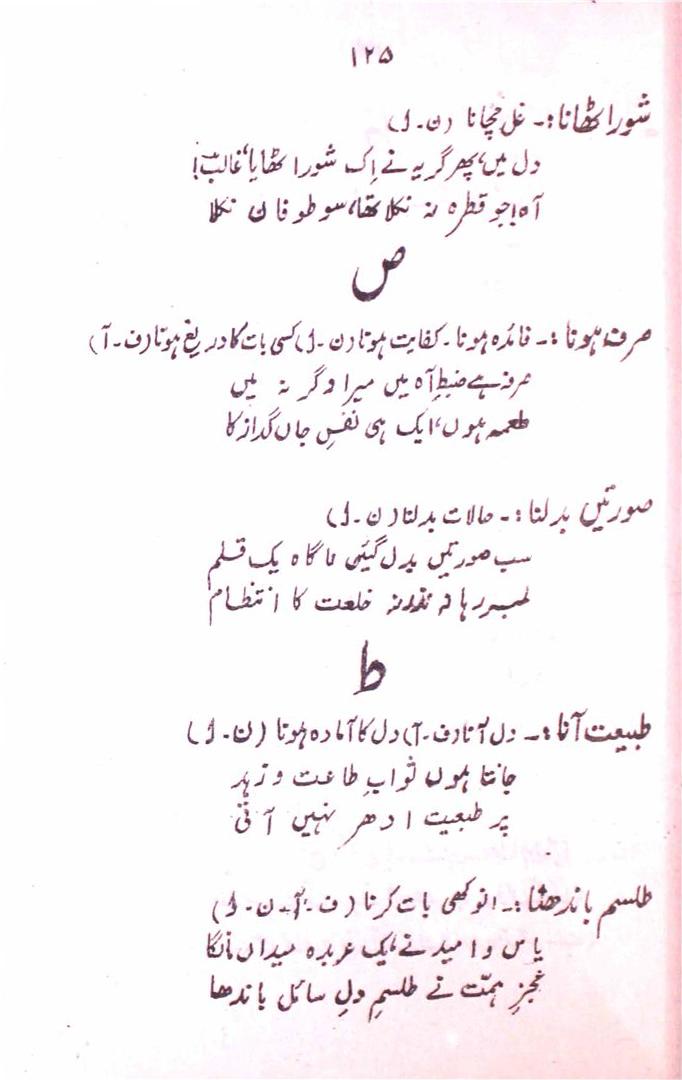 ۱۲۵
شور اٹھانا:۔ غل مچانا (ن۔ل)
دل میں، پھر گریہ نے اِک شور اٹھایا، غالبؔ!
آہ! جو قطرہ نہ نکلا تھا، سو طوفان نکلا
ص
صرفہ ہونا:۔ فائدہ ہونا۔ کفایت ہونا (ن۔ل) کسی بات کا دریغ ہونا (ف۔آ)
صرفہ ہے ضبطِ آہ میں میرا وگر نہ میں
طعمہ ہوں، ایک ہی نفسِ جاں گداز کا
صورتیں بدلنا:۔ حالات بدلنا (ن۔ل)
سب صورتیں بدل گئیں ناگاہ یک قلم
لمبر رہا نہ نذر نہ خلعت کا انتظام
ط
طبیعت آنا:۔ دل آنا (ف۔آ) دل کا آمادہ ہونا (ن۔ل)
جانتا ہوں ثوابِ طاعت و زہد
پر طبعیت ادھر نہیں آتی
طلسم باندھنا:۔ انوکھی بات کرنا (ف۔آ۔ن۔ل)
یاس و امید نے یک عربدہ میداں مانگا
عجزِ ہمّت نے طلسمِ دلِ سائل باندھا